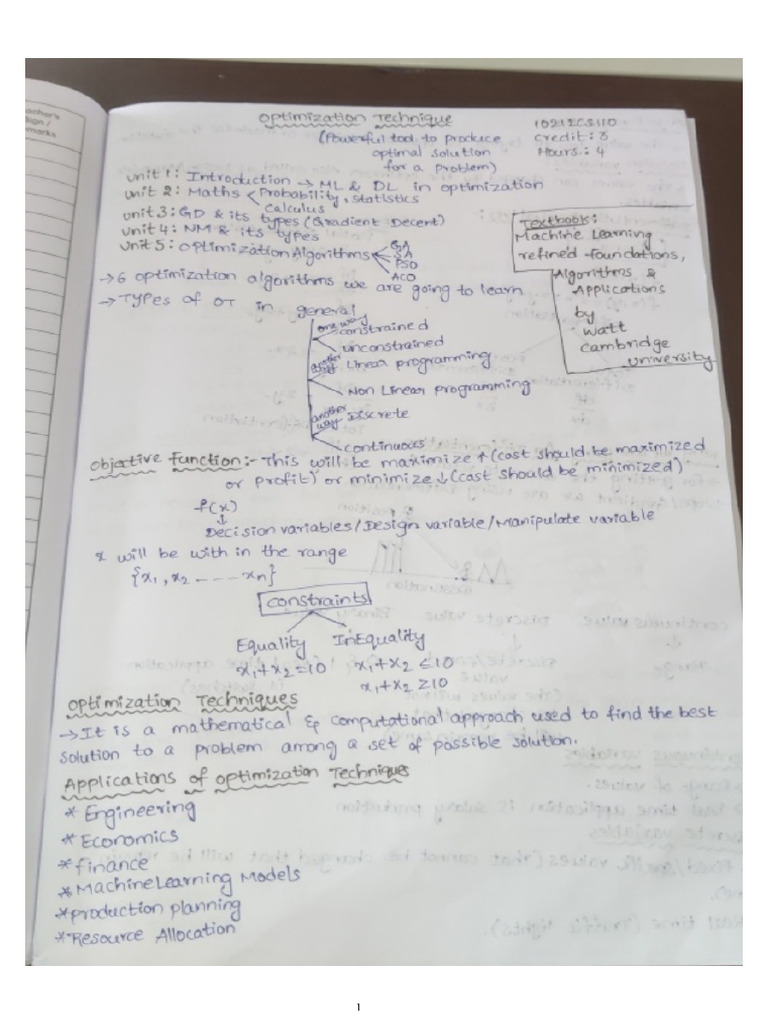 Optimization Technique
10212CS110
(Powerful tool to produce
optimal solution
for a problem)
credit: 3
Hours: 4
unit 1: Introduction → ML & DL in optimization
unit 2: Maths < Probability, statistics
calculus
unit 3: GD & its types (Gradient Decent)
unit 4: NM & its types
unit 5: Optimization Algorithms
GA
SA
PSO
ACO
Textbook:
Machine Learning
refined foundations,
Algorithms &
Applications
by
Watt
Cambridge
university
→ 6 optimization algorithms we are going to learn
→ Types of OT in general
one way
constrained
unconstrained
another
Linear programming
Non Linear programming
another
way
Discrete
continuous
Objective function:- This will be maximize ↑ (cost should be maximized
or profit) or minimize ↓ (cast should be minimized)
f(x)
↓
Decision variables/Design variable/Manipulate variable
x will be with in the range
{x1, x2 ------ xn}
constraints
Equality InEquality
x1+x2=10 x1+x2 ≤10
x1+x2 ≥10
Optimization Techniques
→ It is a mathematical & computational approach used to find the best
solution to a problem among a set of possible solution.
Applications of optimization Techniques
* Engineering
* Economics
* finance
* Machine Learning Models
* production planning
* Resource Allocation
1